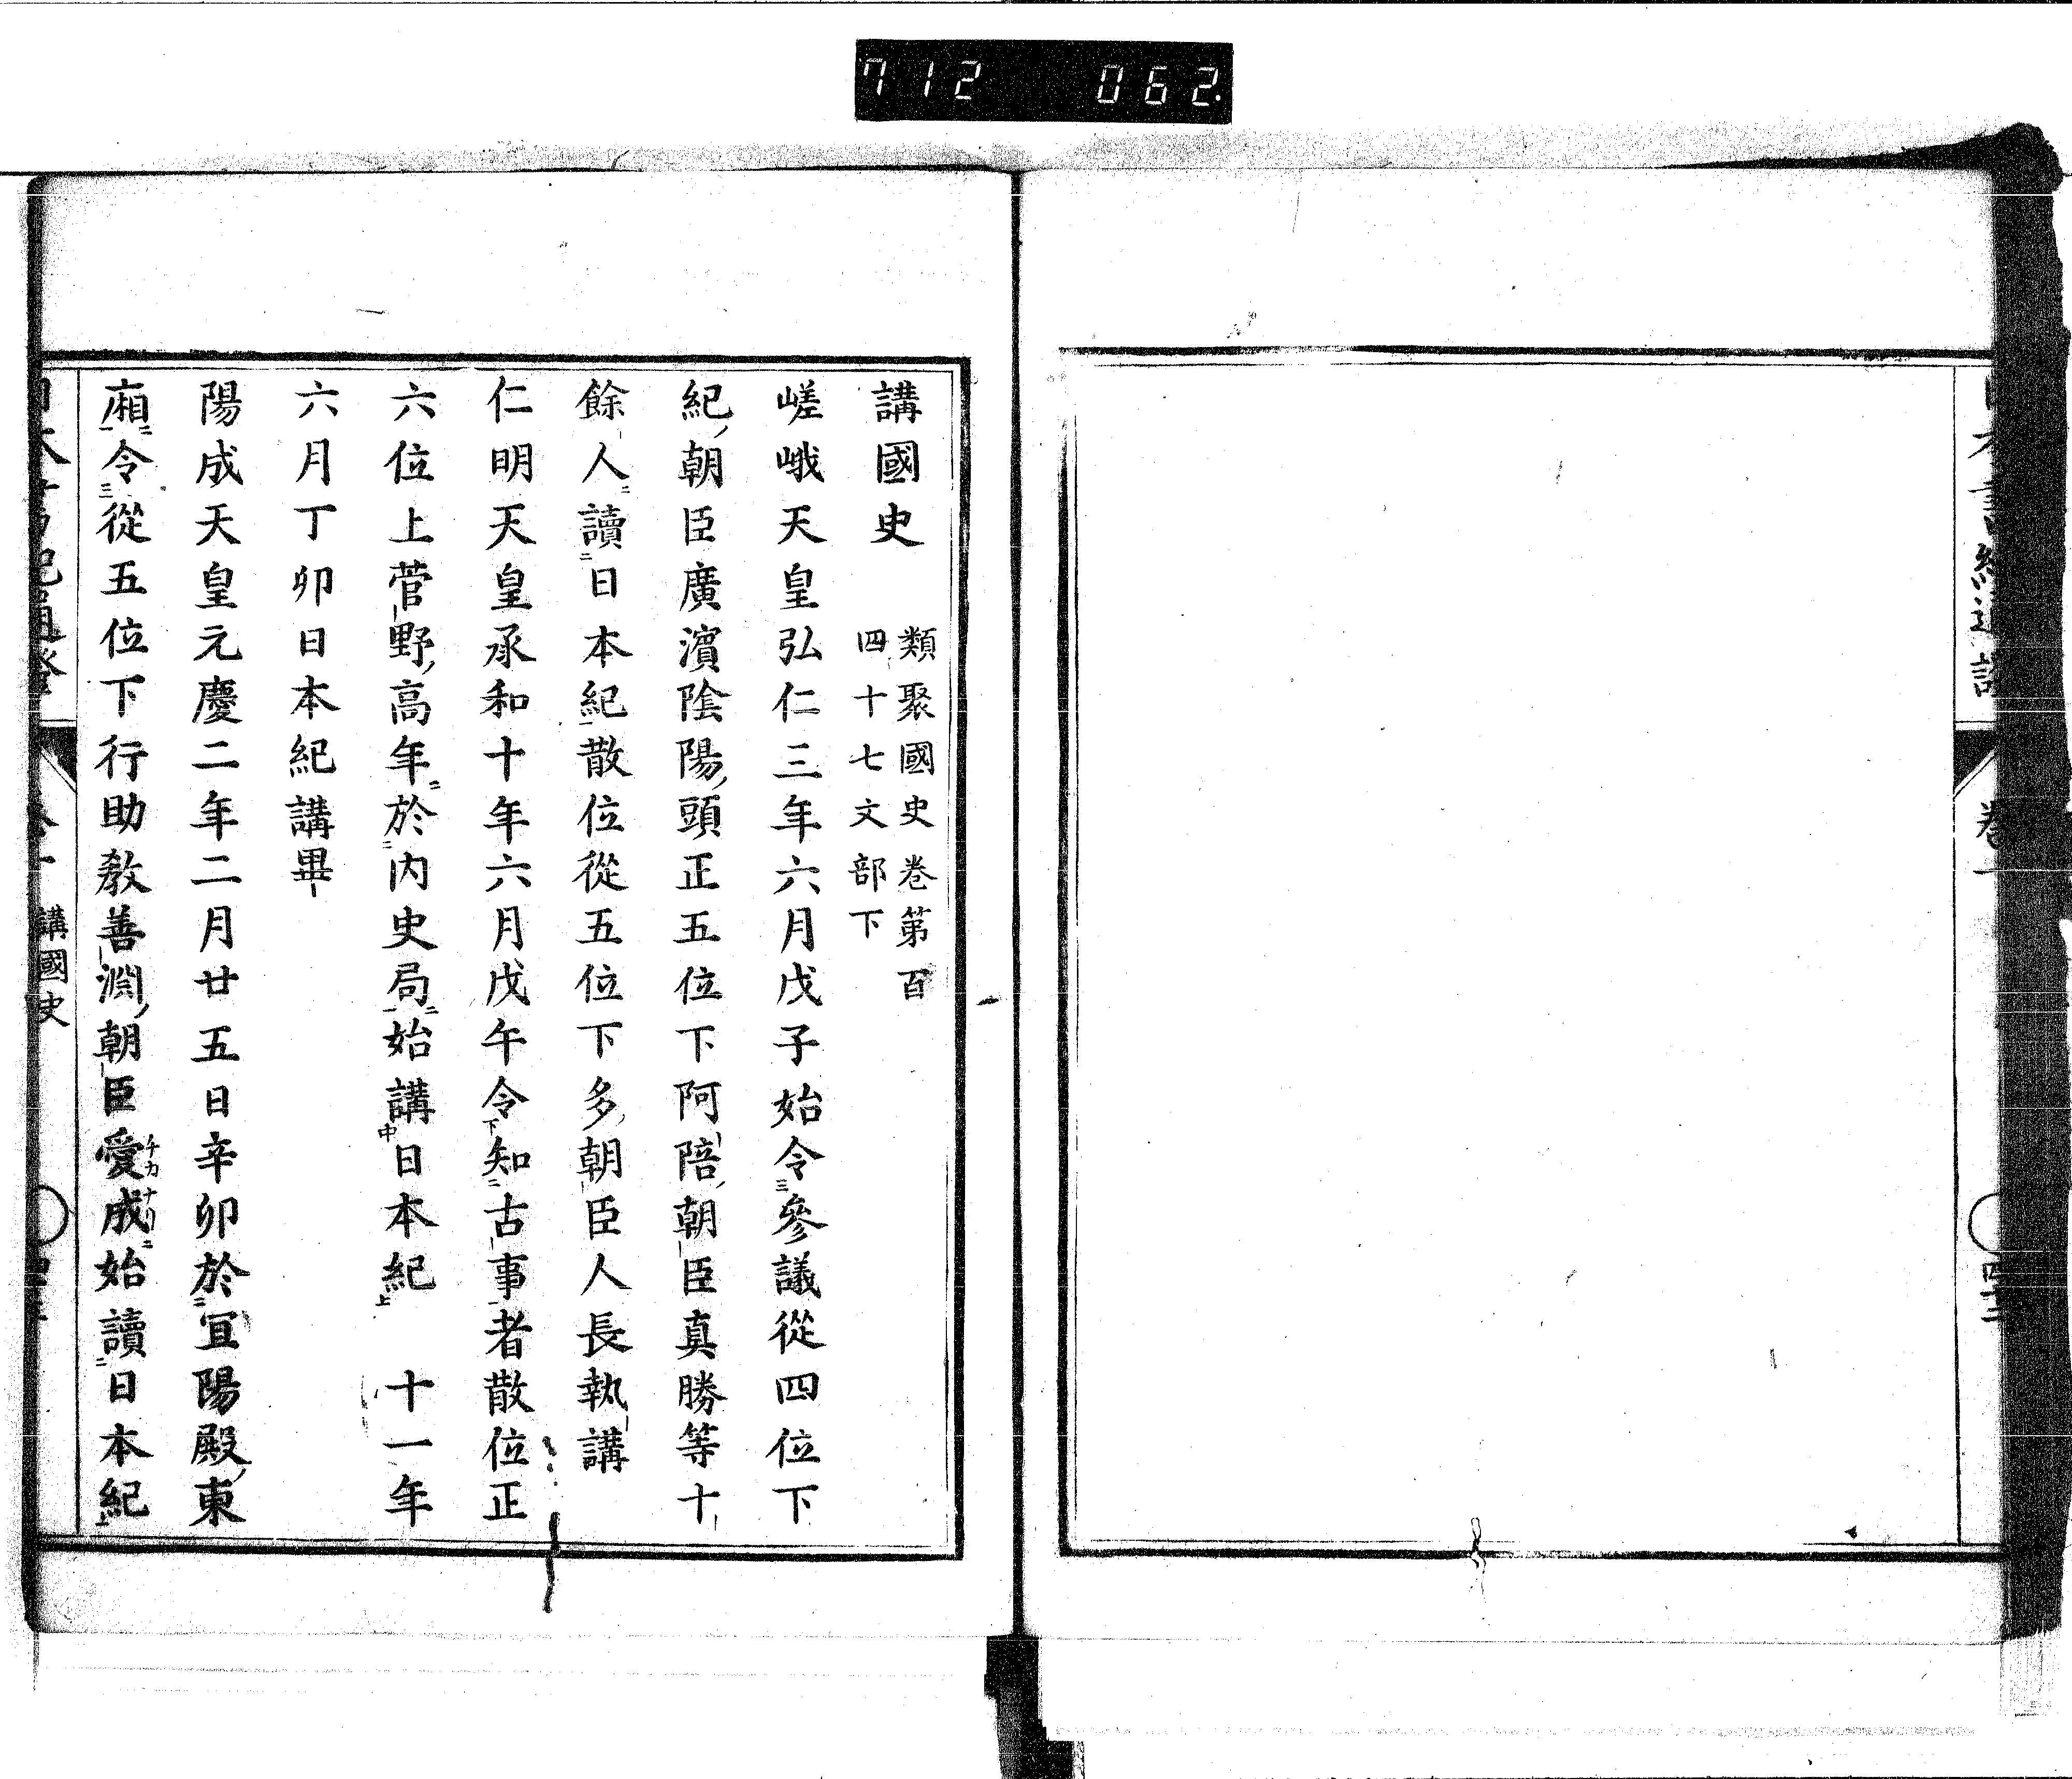 712 062
卷一
講國史 類聚國史卷第百
四十七文部下
嵯峨天皇弘仁三年六月戊子始令參議從四位下
紀朝臣廣濱陰陽頭正五位下阿陪朝臣真勝等十
餘人讀日本紀散位從五位下多朝臣人長執講
仁明天皇承和十年六月戊午令知古事者散位正
六位上菅野高年於内史局始講日本紀 十一年
六月丁卯日本紀講畢
陽成天皇元慶二年二月廿五日辛卯於宜陽殿東
廂令從五位下行助教善淵朝臣愛成始讀日本紀
チカナリ
講國史